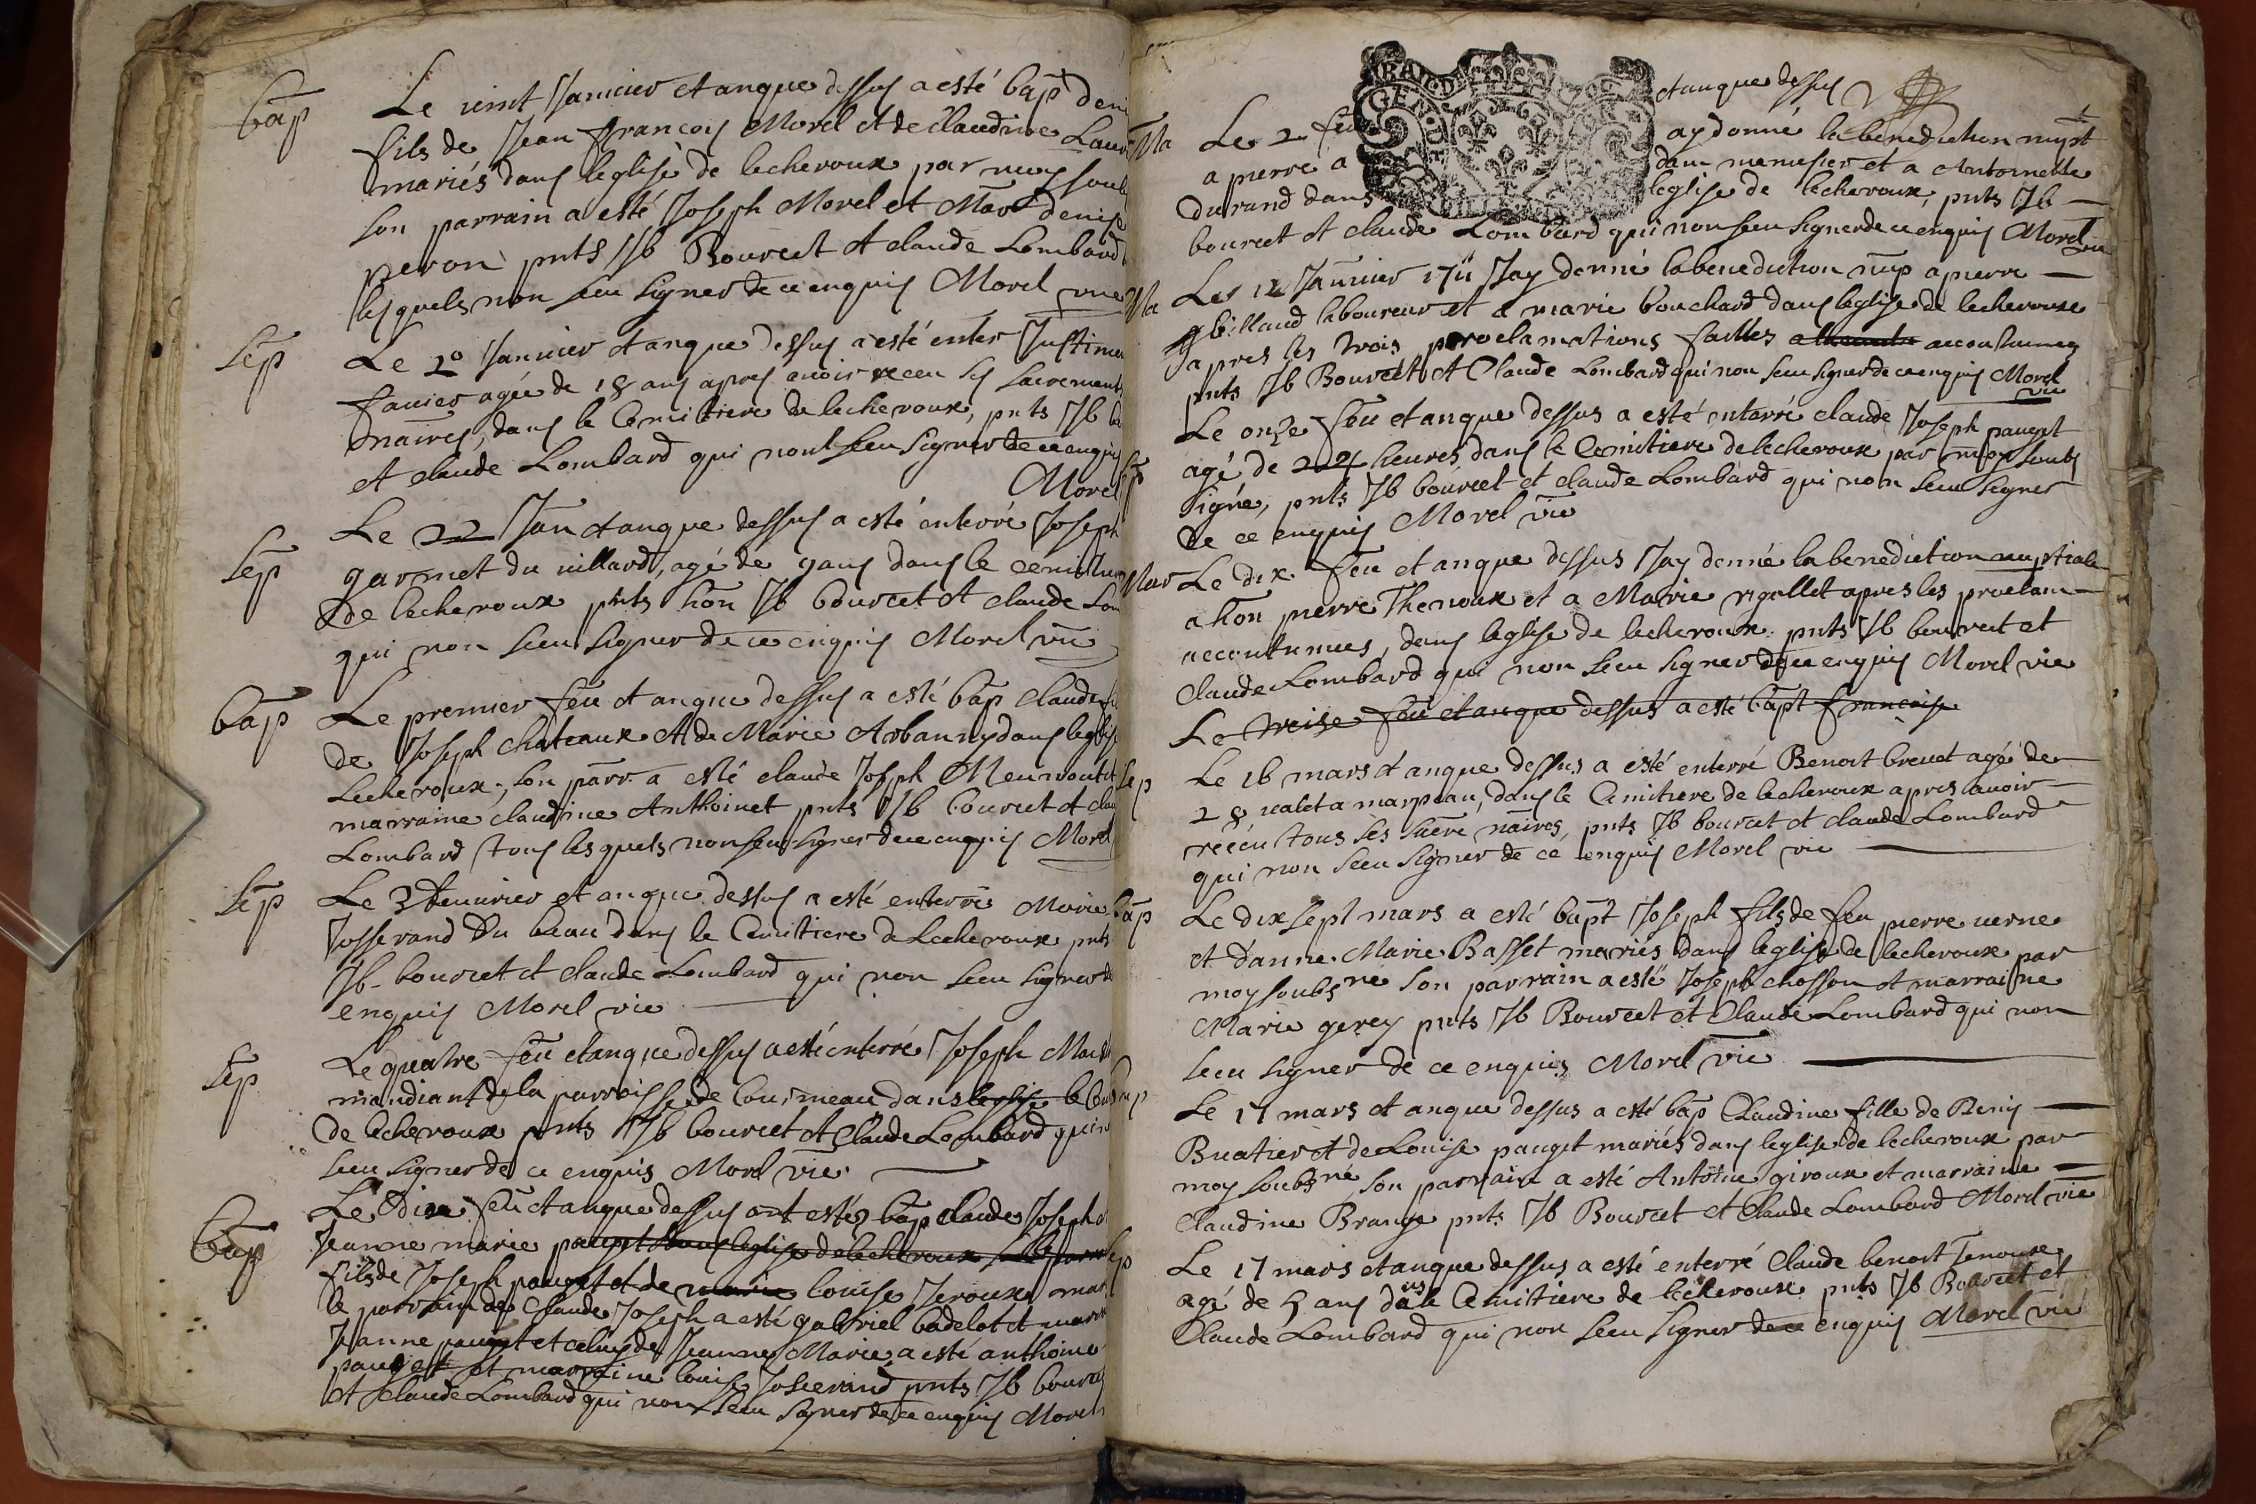 bap
Le vint Janvier et anque dessus a esté bap deni
fils de Jean François Morel et de Claudine Laur
mariés dans leglise de lecheroux par moy soub
son parrain a esté Joseph Morel et Mar denise
peron pnts Jb Bourcet et claude Lombard
lesquels non sceu signer de ce enquis Morel vic
sep
Le 20 Janvier et anque dessus a esté enter Justine
favier agée de 18 ans apres avoir receu ses sacrements
dans le Cemitiere de lecheroux, pnts Jb
et claude Lombard qui nont sceu signer de ce enquis
Morel
sep
Le 22 Jan et anque dessus a esté enterré Joseph
garmet du villard, agé de 9 ans dans le cemitiere
de lecheroux pnts hon Jb bourcet et claude Lom
qui non sceu signer de ce enquis Morel vic
bap
Le premier feu et anque dessus a esté bap claude
de Joseph chateaux et de Marie Arbanny dans leglise
Lecheroux, son parr a esté claude Joseph Meunront et
marraine claudine Anthoinet pnts Jb bourcet et clau
Lombard tous lesquels non sceu signer de ce enquis Morel
sep
Le 3 fevrier et anque dessus a esté enterré Marie
Josserand du beau dans le Cemitiere de Lecheroux pnts
Jb bourcet et claude Lombard qui non sceu signer de
enquis Morel vic
sep
Le quatre feu et anque dessus a esté enterré Joseph
mandiant de la parroisse de Courmeau dans leglise le Cem
de lecheroux pnts Jb bourcet et Claude Lombard qui n
sceu signer de ce enquis Morel vic
bap
Le Dix feu et anque dessus ont estés bap claude Joseph et
Jeanne marie pauget dans leglise de lecheroux
fils de Joseph pauget et de marie louise Jeroux mar
le parrain de Claude Joseph a esté gabriel badelot et marr
Jeanne pauget et celuy de Jeanne Marie a esté anthoine
pauget et marraine louise Josserand pnts Jb bourcet
et claude Lombard qui non sceu signer de ce enquis Morel
Ma
Le 2 feu et anque dessus
a pierre a ay donné la benediction nupt
dam menusier et a Antoinette
Durand dans leglise de lecheroux, pnts Jb
bourcet et claude Lombard qui non sceu signer de ce enquis Morel vic
Ma
Les 12 Janvier 1711 Jay donné la benediction nup a pierre
billaud laboureur et a marie bouchard dans leglise de lecheroux
apres les trois proclamations faittes accoutumees
pnts Jb Bourcet et Claude Lombard qui non sceu signer de ce enquis Morel
vic
sep
Le onze feu et anque dessus a esté enterré claude Joseph pauget
agé de 24 heures dans le Cemitiere de lecheroux par moy soub
signé, pnts Jb bourcet et claude Lombard qui non sceu signer
de ce enquis Morel vic
Mar
Le dix feu et anque dessus Jay donné la benediction nuptiale
a hon pierre Thenoux et a Marie rigollet apres les proclam
accoutumees, dans leglise de lecheroux pnts Jb bourcet et
Claude Lombard qui non sceu signer de ce enquis Morel vic
Le treise feu et anque dessus a esté bapt françoise
sep
Le 16 mars et anque dessus a esté enterré Benoit brevet agé de
28 valet a marpeau, dans le Cemitiere de lecheroux apres avoir
receu tous ses sacre naires, pnts Jb bourcet et claude Lombard
qui non sceu signer de ce enquis Morel vic
bap
Le dix sept mars a esté bapt Joseph fils de feu pierre verne
et d'anne Marie Basset mariés dans leglise de lecheroux par
moy soubs né son parrain a esté Joseph chosson et marraine
Marie gerey pnts Jb Bourcet et Claude Lombard qui non
sceu signer de ce enquis Morel vic
bap
Le 17 mars et anque dessus a esté bap Claudine fille de Benis
Buatier et de Louise pauget mariés dans leglise de lecheroux par
moy soubsné, son parrain a esté Antoine giroux et marraine
Claudine Brange pnts Jb Bourcet et Claude Lombard Morel vic
sep
Le 17 mars et anque dessus a esté enterré Claude benoit Tenoux
agé de 5 ans dans le Cemitiere de lecheroux pnts Jb Bourcet et
Claude Lombard qui non sceu signer de ce enquis Morel vic